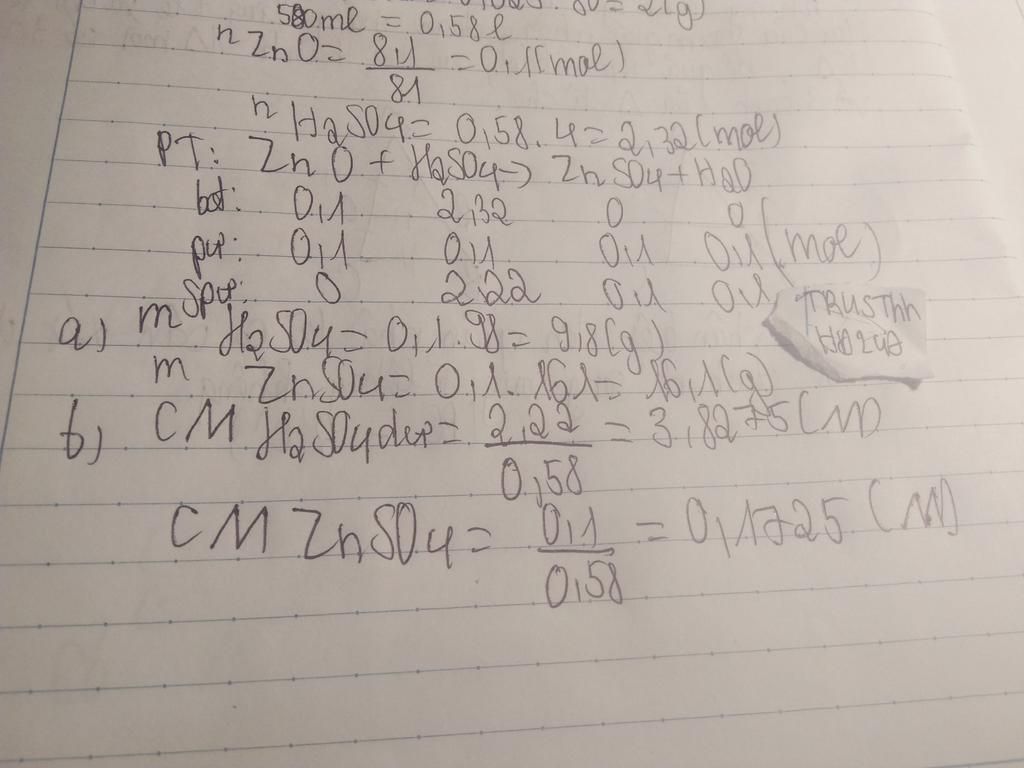 580ml = 0,58l
n ZnO = 8,1/81 = 0,1 (mol)
n H2SO4 = 0,58.4 = 2,32 (mol)
PT: ZnO + H2SO4 → ZnSO4 + H2O
bđ: 0,1 2,32 0 0
pư: 0,1 0,1 0,1 0,1 (mol)
spư: 0 2,22 0,1 0,1
a) m H2SO4 = 0,1.98 = 9,8(g)
m ZnSO4 = 0,1.161 = 16,1(g)
b) CM H2SO4 dư = 2,22/0,58 = 3,8275 (M)
CM ZnSO4 = 0,1/0,58 = 0,1725 (M)